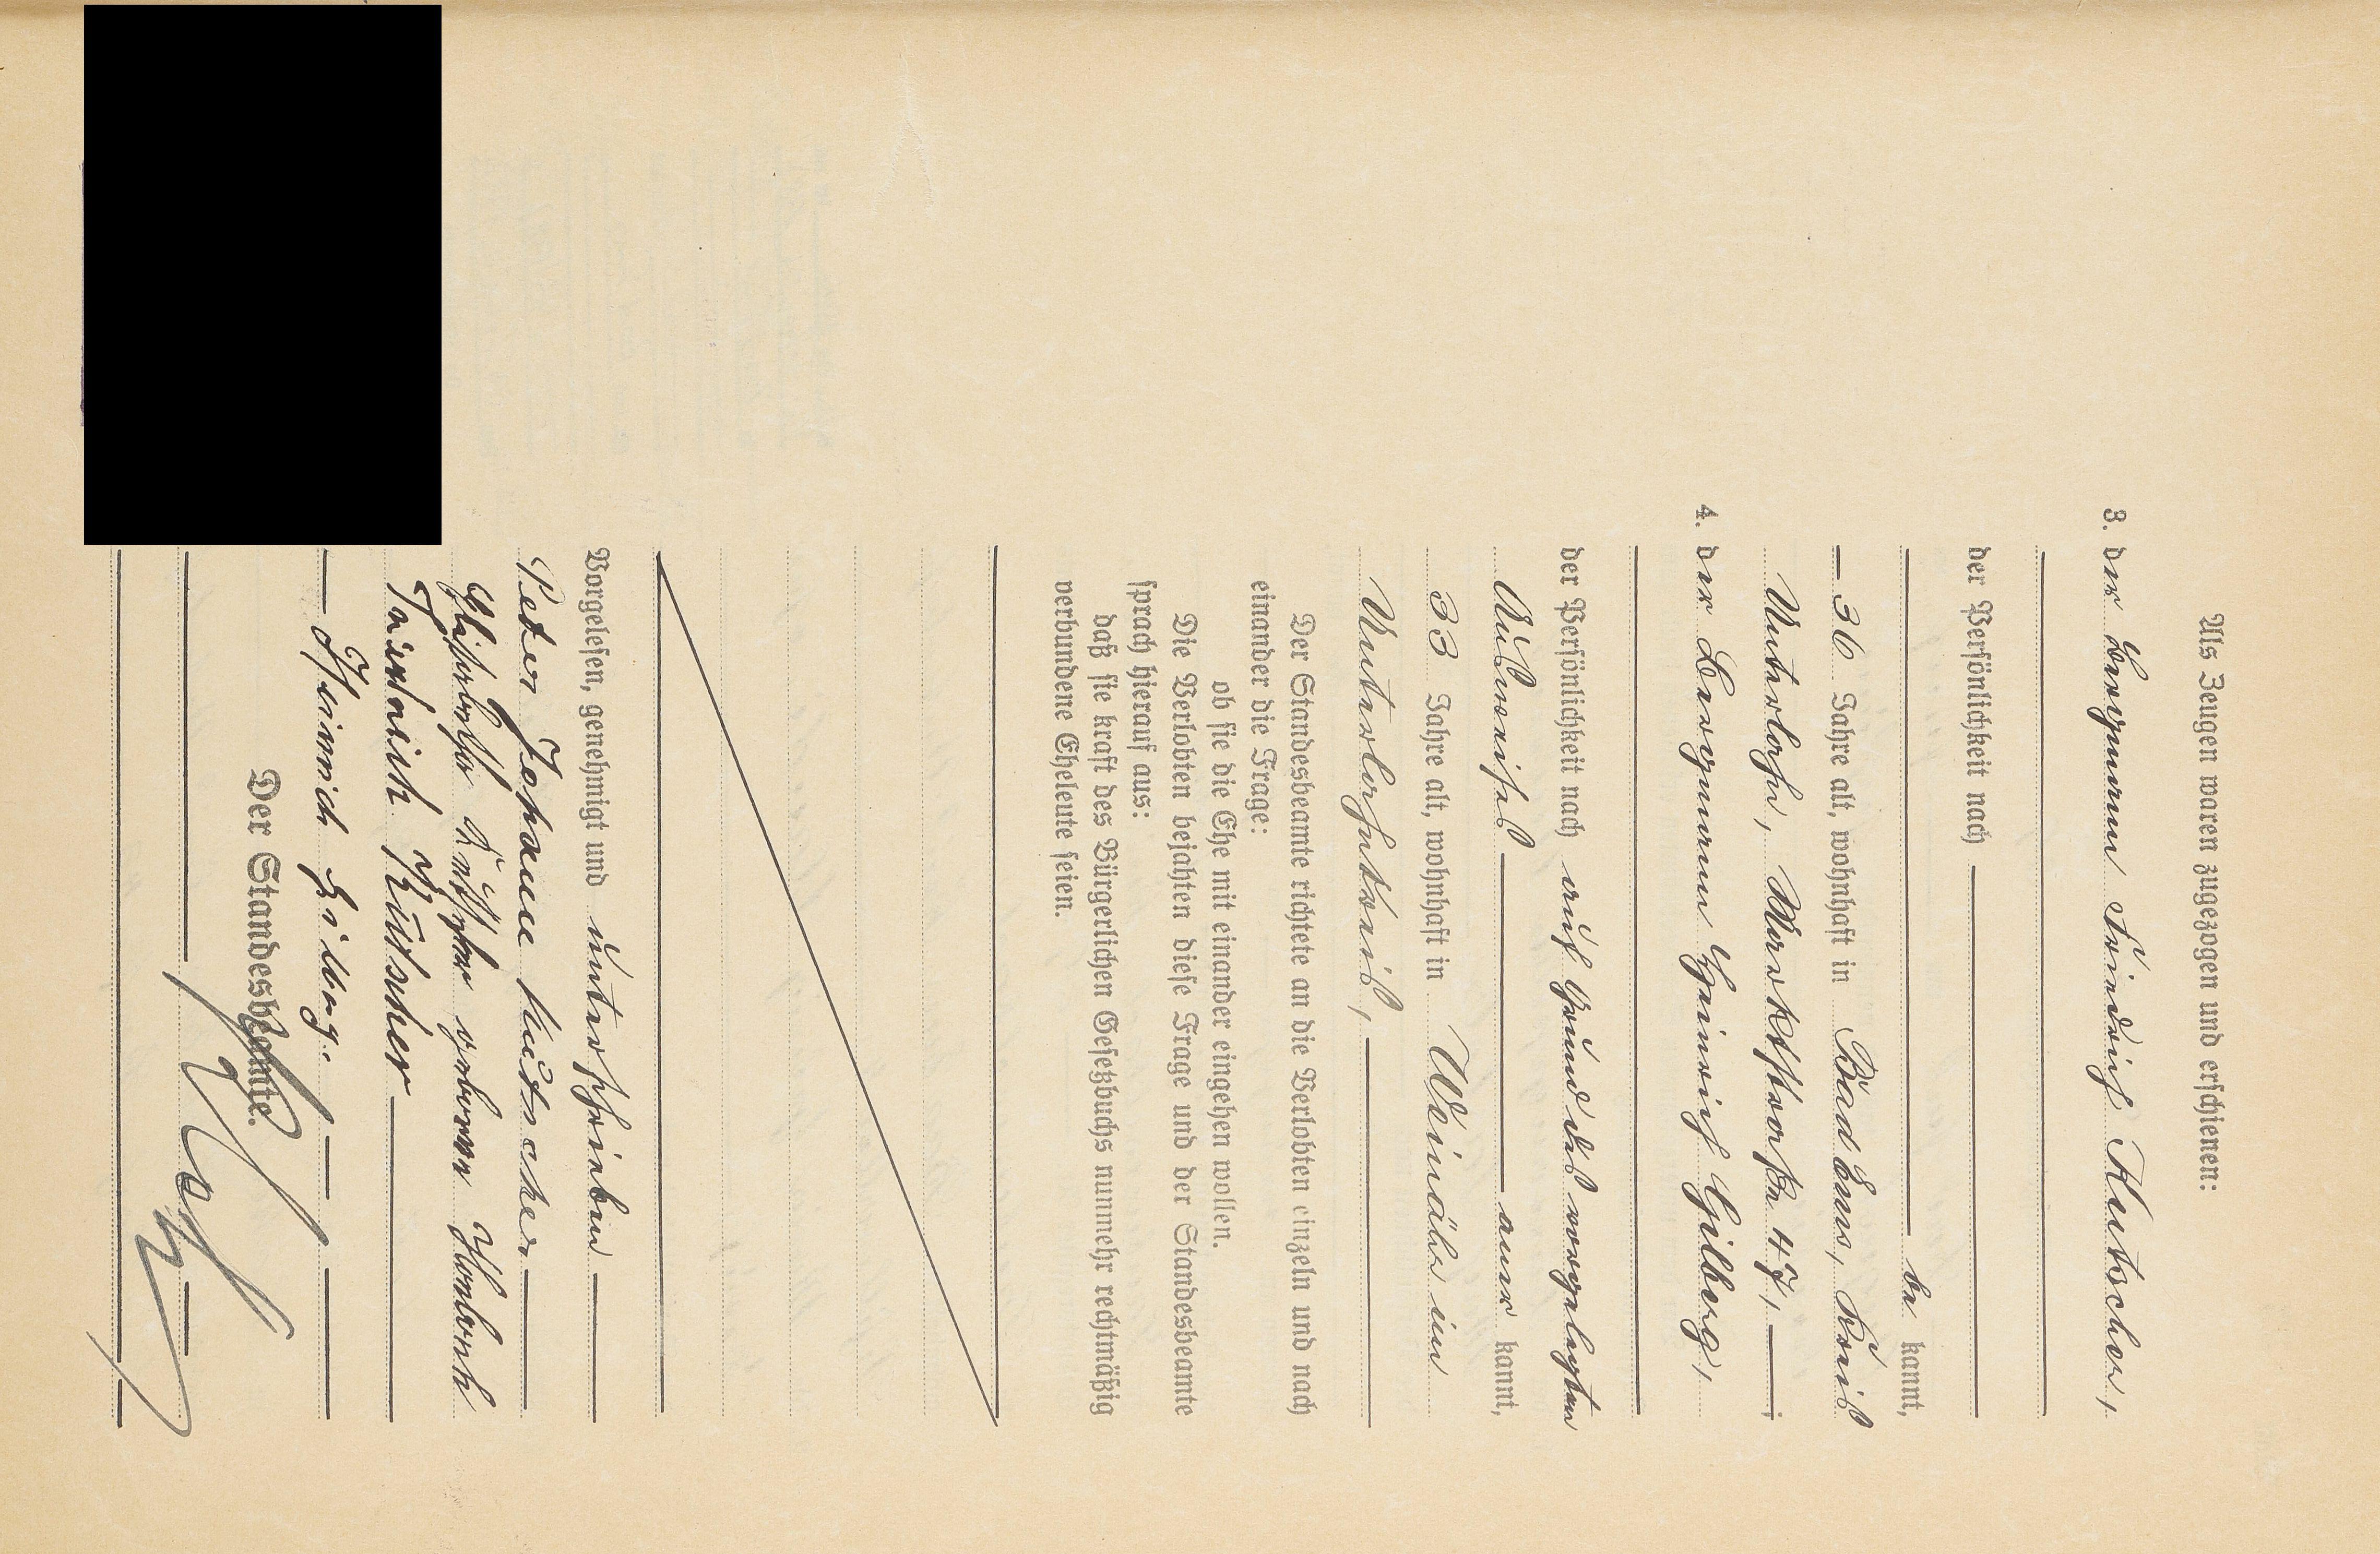 Als Zeugen waren zugezogen und erschienen:
3. der Bergmann Friedrich Kutscher,
der Persönlichkeit nach
be kannt,
36 Jahre alt, wohnhaft in Bad Ems, Kreis
Unterlahn, Marktstraße 47,
4. der Bergmann Heinrich Hilberg,
der Persönlichkeit nach auf Grund des vorgelegten
Ausweises aner kannt,
33 Jahre alt, wohnhaft in Weinähr im
Unterlahnkreis,
Der Standesbeamte richtete an die Verlobten einzeln und nach
einander die Frage:
ob sie die Ehe mit einander eingehen wollen.
Die Verlobten bejahten diese Frage und der Standesbeamte
sprach hierauf aus:
daß sie kraft des Bürgerlichen Gesetzbuchs nunmehr rechtmäßig
verbundene Eheleute seien.
Vorgelesen, genehmigt und unterschrieben
Peter Johann Kutscher
Elisabetha Kutscher geborene
Friedrich Kutscher
Heinrich Hilberg.
Der Standesbeamte.